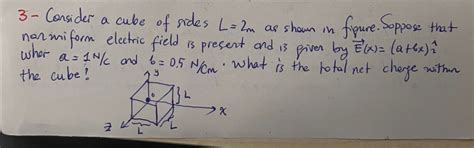 3- Consider a cube of sides L=2m as shown in figure. Soppose that
nonuniform electric field is present and is given by E⃗(x)=(a+bx)î
wher a=1N/c and b=0,5 N/cm. What is the total net charge within
the cube!
y
L
x
z
L
L